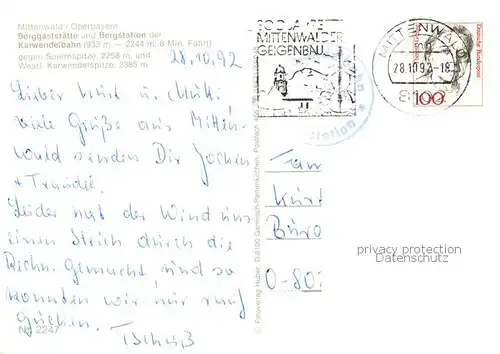 Mittenwald / Oberbayern
Berggaststätte und Bergstation der
Karwendelbahn (933 m — 2244 m; 8 Min. Fahrt)
gegen Sonnspitze, 2258 m, und
Westl. Karwendelspitze, 2385 m
28.10.92
Lieber Kurt u. Mutti
viele Grüße aus Mitten-
wald senden Dir Jochen
+ Traudel.
Leider hat der Wind uns
einen Strich durch die
Rechn. gemacht und so
konnten wir nur rauf
gucken.
Tschüß
Nr. 2247
© Fotoverlag Huber, D-8100 Garmisch-Partenkirchen, Postfach
300 JAHRE
MITTENWALDER
GEIGENBAU
MITTENWALD
28.10.92-18
8102
Deutsche Bundespost
100
station
Fam
Kurt
Büro
0-802
privacy protection
Datenschutz